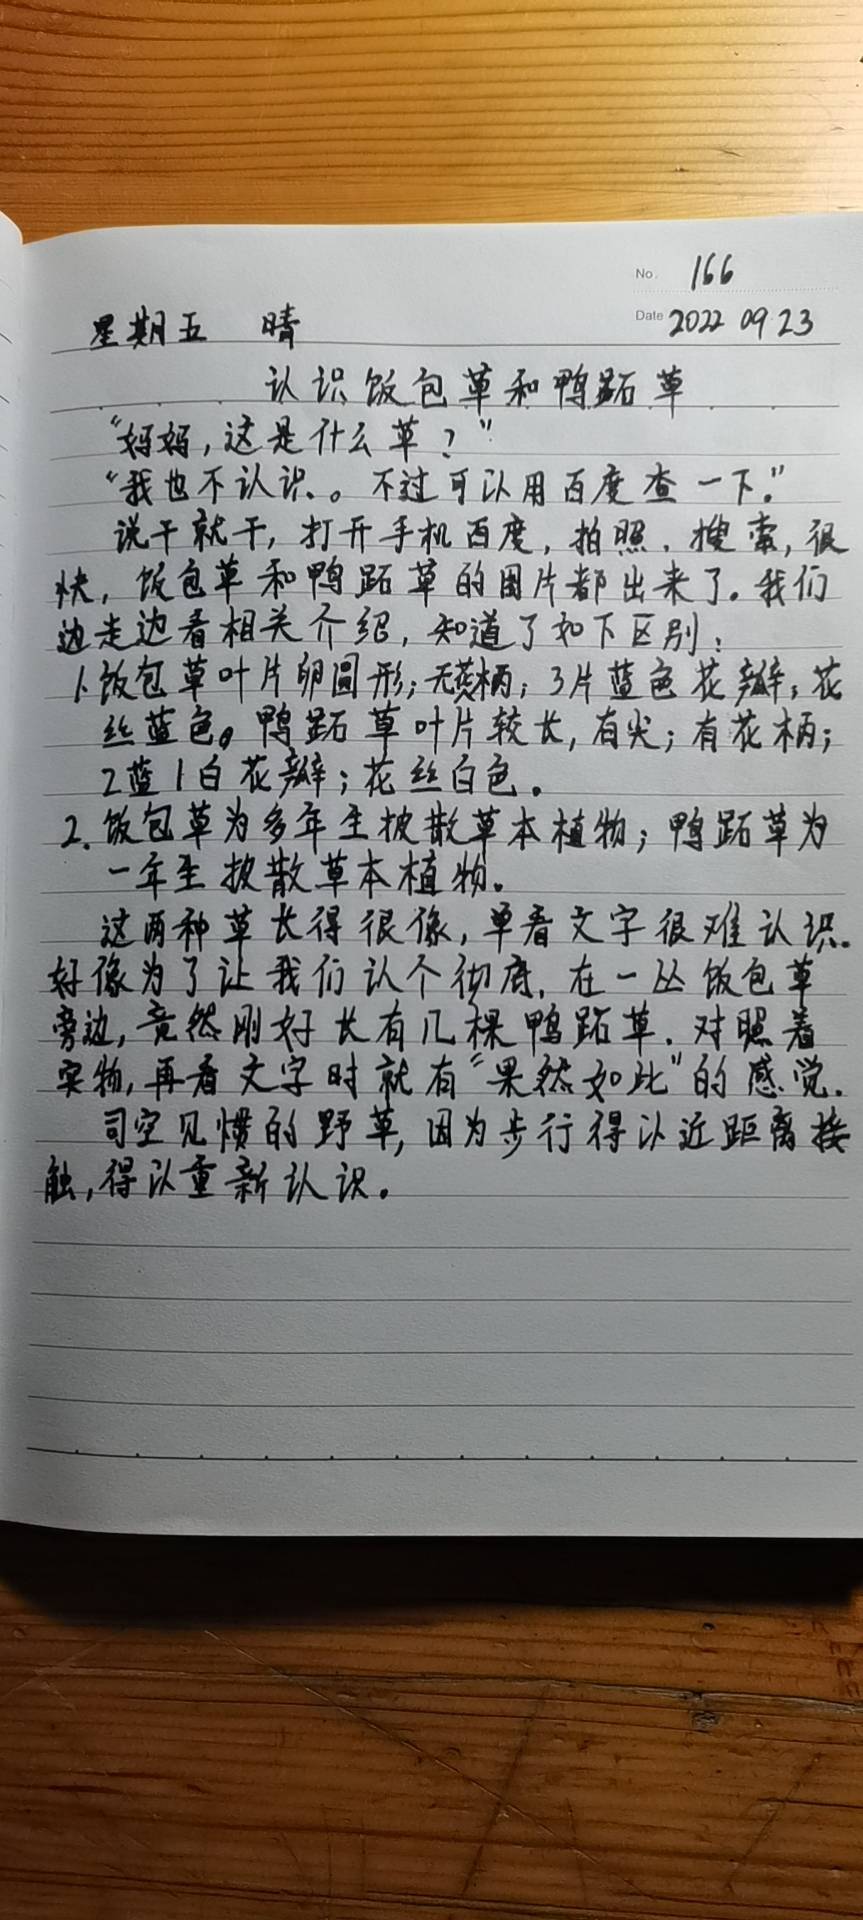 No. 166
星期五 晴 Date 2022 09 23
认识饭包草和鸭跖草
“妈妈,这是什么草?”
“我也不认识。。不过可以用百度查一下。”
说干就干,打开手机百度,拍照、搜索,很
快,饭包草和鸭跖草的图片都出来了。我们
边走边看相关介绍,知道了如下区别:
1.饭包草叶片卵圆形;无柄;3片蓝色花瓣;花
丝蓝色。鸭跖草叶片较长,有尖;有花柄;
2蓝1白花瓣;花丝白色。
2.饭包草为多年生披散草本植物;鸭跖草为
一年生披散草本植物。
这两种草长得很像,单看文字很难认识.
好像为了让我们认个彻底,在一丛饭包草
旁边,竟然刚好长有几棵鸭跖草.对照着
实物,再看文字时就有“果然如此”的感觉.
司空见惯的野草,因为步行得以近距离接
触,得以重新认识。